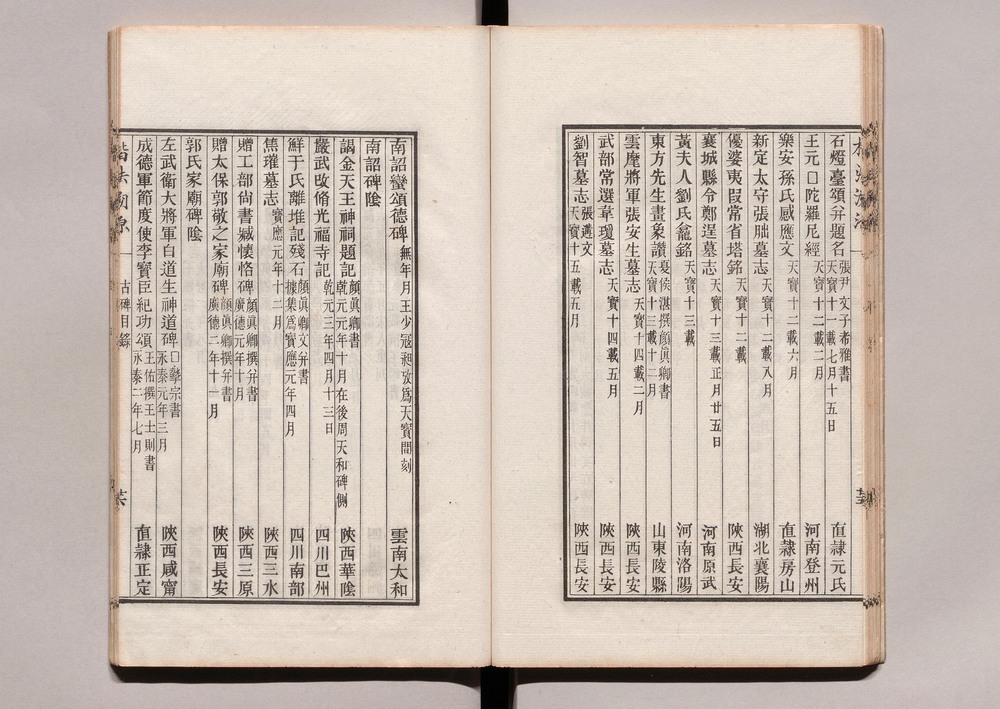 石燈臺頌幷題名 張尹文子希雅書 天寶十一載七月十五日 直隸元氏
王元口陀羅尼經 天寶十二載二月 河南登州
樂安孫氏感應文 天寶十二載六月 直隸房山
新定太守張朏墓志 天寶十二載八月 湖北襄陽
優婆夷叚常省塔銘 天寶十二載 陝西長安
襄城縣令鄭逞墓志 天寶十三載正月廿五日 河南原武
黃夫人劉氏龕銘 天寶十三載 河南洛陽
東方先生畫象讚 夏侯湛撰顏眞卿書 天寶十三載十二月 山東陵縣
雲麾將軍張安生墓志 天寶十四載二月 陝西長安
武部常選韋瓊墓志 天寶十四載五月 陝西長安
劉智墓志 張遘文 天寶十五載五月 陝西長安
南詔蠻頌德碑 無年月王少寇昶攷爲天寶間刻 雲南太和
南詔碑陰
謁金天王神祠題記 顏眞卿書 乾元元年十月在後周天和碑側 陝西華陰
嚴武攺脩光福寺記 乾元三年四月十三日 四川巴州
鮮于氏離堆記殘石 顏眞卿文幷書 據集爲寶應元年四月 四川南部
焦璀墓志 寶應元年十二月 陝西三水
贈工部尙書臧懷恪碑 顏眞卿撰幷書 廣德元年十月 陝西三原
贈太保郭敬之家廟碑 顏眞卿撰幷書 廣德二年十一月 陝西長安
郭氏家廟碑陰
左武衛大將軍白道生神道碑 口摯宗書 永泰元年三月 陝西咸甯
成德軍節度使李寶臣紀功頌 王佑撰王士則書 永泰二年七月 直隸正定
楷法溯原 古碑目錄